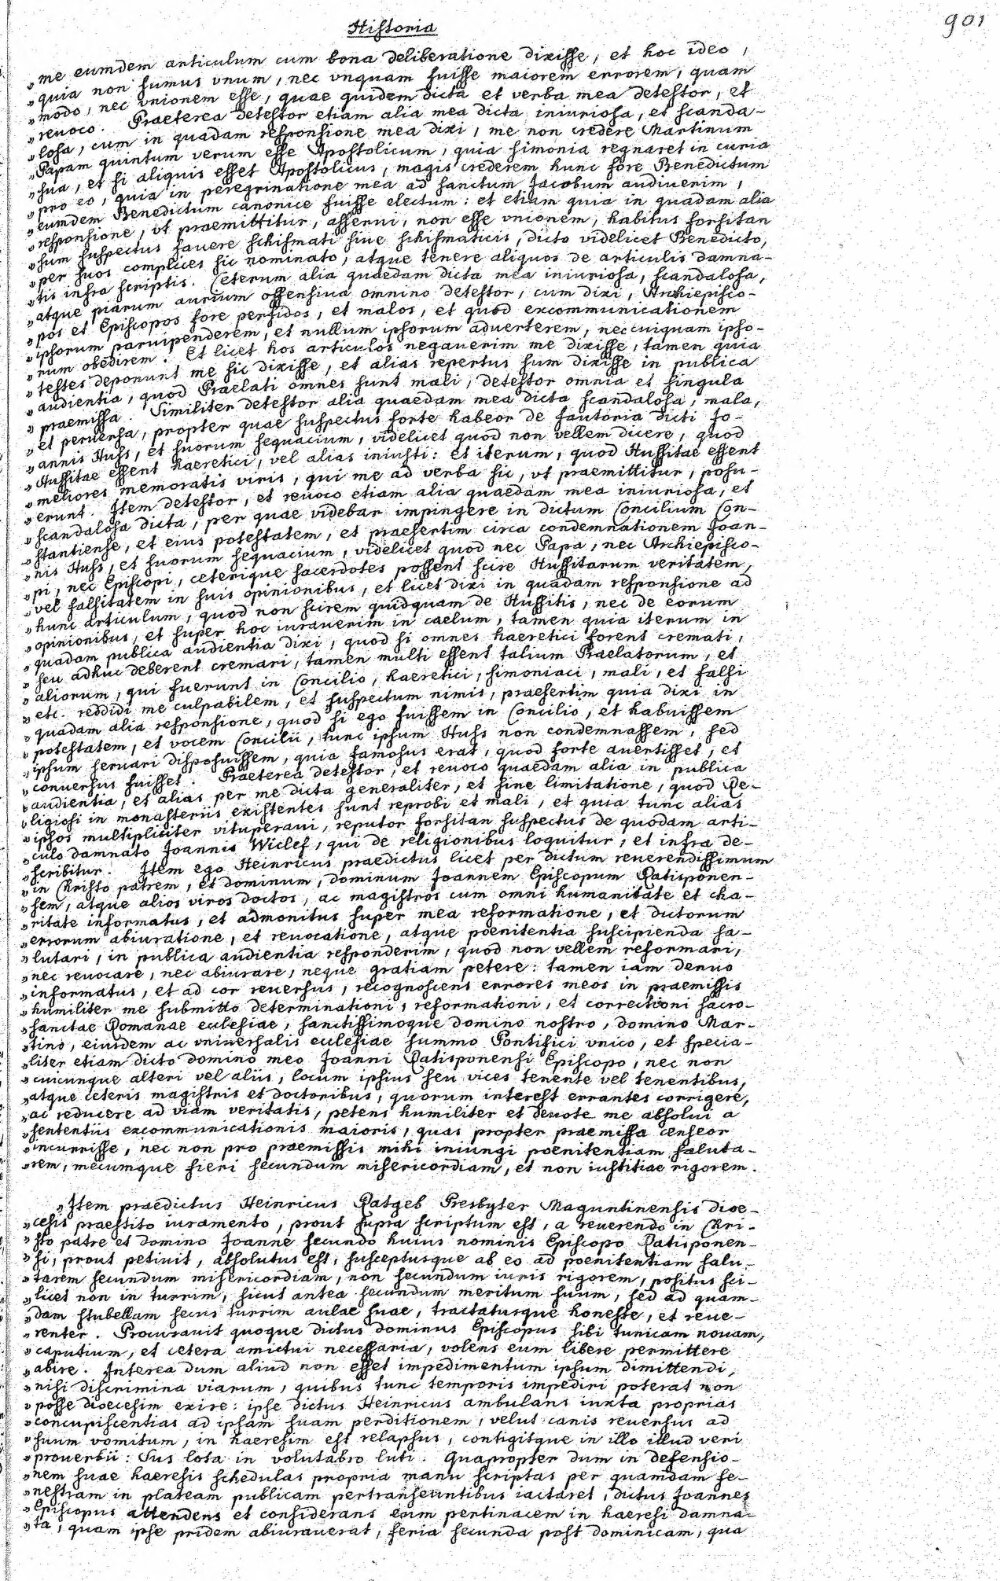 Historia
901
„me eumdem articulum cum bona deliberatione dixisse, et hoc ideo,
„quia non sumus vnum, nec vnquam fuisse maiorem errorem, quam
„modo, nec vnionem esse, quae quidem dicta et verba mea detestor, et
„reuoco. Praeterea detestor etiam alia mea dicta iniuriosa, et scanda-
„losa, cum in quadam responsione mea dixi, me non credere Martinum
„Papam quintum verum esse Apostolicum, quia simonia regnaret in curia
„sua, et si aliquis esset Apostolicus, magis crederem hunc fore Benedictum
„pro eo, quia in peregrinatione mea ad sanctum Jacobum audiuerim,
„eumdem Benedictum canonice fuisse electum: et etiam quia in quadam alia
„responsione, vt praemittitur, asserui, non esse vnionem, habitus forsitan
„sum suspectus fauere schismati siue schismaticis, dicto videlicet Benedicto,
„per suos complices sic nominato, atque tenere aliquos de articulis damna-
„tis infra scriptis. Ceterum alia quaedam dicta mea iniuriosa, scandalosa,
„atque piarum aurium offensiua omnino detestor, cum dixi, Archiepisco-
„pos et Episcopos fore perfidos, et malos, et quod excommunicationem
„ipsorum paruipenderem, et nullum ipsorum aduerterem, nec cuiquam ipso-
„rum obedirem. Et licet hos articulos negauerim me dixisse, tamen quia
„testes deponunt me sic dixisse, et alias repertus sum dixisse in publica
„audientia, quod Praelati omnes sunt mali, detestor omnia et singula
„praemissa. Similiter detestor alia quaedam mea dicta scandalosa, mala,
„et peruersa, propter quae suspectus forte habeor de fautoria dicti Jo-
„annis Huss, et suorum sequacium, videlicet quod non vellem dicere, quod
„Hussitae essent haeretici, vel alias iniusti: et iterum, quod Hussitae essent
„meliores memoratis viris, qui me ad verba sic, vt praemittitur, posu-
„erunt. Item detestor, et reuoco etiam alia quaedam mea iniuriosa, et
„scandalosa dicta, per quae videbar impingere in dictum Concilium Con-
„stantiense, et eius potestatem, et praesertim circa condemnationem Joan-
„nis Huss, et suorum sequacium, videlicet quod nec Papa, nec Archiepisco-
„pi, nec Episcopi, ceterique sacerdotes possent scire Hussitarum veritatem,
„vel falsitatem in suis opinionibus, et licet dixi in quadam responsione ad
„hunc articulum, quod non scirem quidquam de Hussitis, nec de eorum
„opinionibus, et super hoc iurauerim in caelum, tamen quia iterum in
„quadam publica audientia dixi, quod si omnes haeretici forent cremati,
„seu adhuc deberent cremari, tamen multi essent talium Praelatorum, et
„aliorum, qui fuerunt in Concilio, haeretici, simoniaci, mali, et falsi
„etc. reddidi me culpabilem, et suspectum nimis, praesertim quia dixi in
„quadam alia responsione, quod si ego fuissem in Concilio, et habuissem
„potestatem, et vocem Concilii, tunc ipsum Huss non condemnassem, sed
„ipsum seruari disposuissem, quia famosus erat, quod forte auertisset, et
„conuersus fuisset. Praeterea detestor, et reuoco quaedam alia in publica
„audientia, et alias per me dicta generaliter, et sine limitatione, quod Re-
„ligiosi in monasteriis existentes sunt reprobi et mali, et quia tunc alias
„ipsos multipliciter vituperaui, reputor forsitan suspectus de quodam arti-
„culo damnato Joannis Wiclef, qui de religionibus loquitur, et infra de-
„scribitur. Item ego Heinricus praedictus licet per dictum reuerendissimum
„in Christo patrem, et dominum, dominum Joannem Episcopum Ratisponen-
„sem, atque alios viros doctos, ac magistros cum omni humanitate et cha-
„ritate informatus, et admonitus super mea reformatione, et dictorum
„errorum abiuratione, et reuocatione, atque poenitentia suscipienda sa-
„lutari, in publica audientia responderim, quod non vellem reformari,
„nec reuocare, nec abiurare, neque gratiam petere: tamen iam denuo
„informatus, et ad cor reuersus, recognoscens errores meos in praemissis
„humiliter me submitto determinationi, reformationi, et correctioni sacro-
„sanctae Romanae ecclesiae, sanctissimoque domino nostro, domino Mar-
„tino, eiusdem ac vniuersalis ecclesiae summo Pontifici vnico, et specia-
„liter etiam dicto domino meo Joanni Ratisponensi Episcopo, nec non
„cuicunque alteri vel aliis, locum ipsius seu vices tenente vel tenentibus,
„atque ceteris magistris et doctoribus, quorum interest errantes corrigere,
„ac reducere ad viam veritatis, petens humiliter et deuote me absolui a
„sententiis excommunicationis maioris, quas propter praemissa censeor
„incurrisse, nec non pro praemissis mihi iniungi poenitentiam saluta-
„rem, mecumque fieri secundum misericordiam, et non iustitiae rigorem.
„Item praedictus Heinricus Ratgeb Presbyter Maguntinensis dioe-
„cesis praestito iuramento, prout supra scriptum est, a reuerendo in Chri-
„sto patre et domino Joanne secundo huius nominis Episcopo Ratisponen-
„si, prout petiuit, absolutus est, susceptusque ab eo ad poenitentiam salu-
„tarem secundum misericordiam, non secundum iuris rigorem, positus sci-
„licet non in turrim, sicut antea secundum meritum suum, sed ad quam-
„dam stubellam secus turrim aulae suae, tractatusque honeste, et reue-
„renter. Procurauit quoque dictus dominus Episcopus sibi tunicam nouam,
„caputium, et cetera amictui necessaria, volens eum libere permittere
„abire. Interea dum aliud non esset impedimentum ipsum dimittendi,
„nisi discrimina viarum, quibus tunc temporis impediri poterat non
„posse dioecesim exire: ipse dictus Heinricus ambulans iuxta proprias
„concupiscentias ad ipsam suam perditionem, velut canis reuersus ad
„suum vomitum, in haeresim est relapsus, contigitque in illo illud veri
„prouerbii: Sus lota in volutabro luti. Quapropter dum in defensio-
„nem suae haeresis schedulas propria manu scriptas per quamdam fe-
„nestram in plateam publicam pertranseuntibus iactaret, dictus Joannes
„Episcopus attendens et considerans eum pertinacem in haeresi damna-
„ta, quam ipse pridem abiurauerat, feria secunda post dominicam, qua